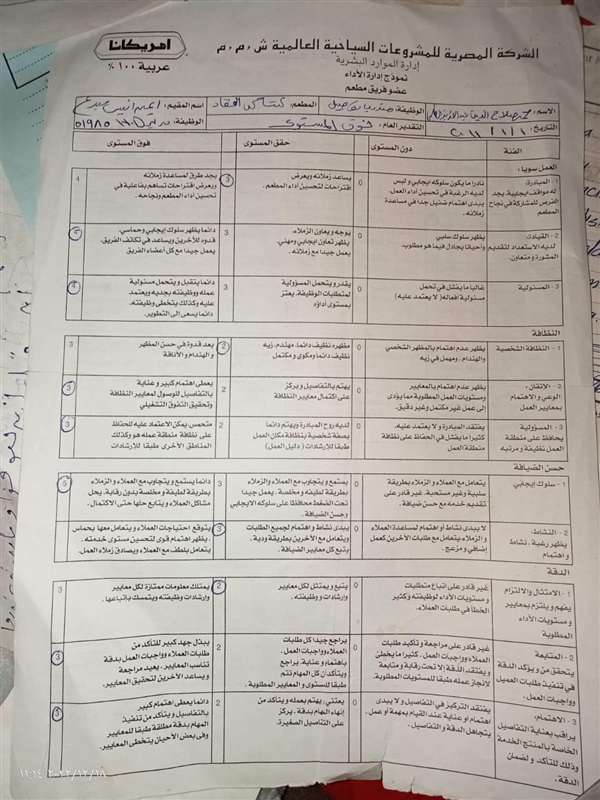 امريكانا
عربية ١٠٠ ٪
الشركة المصرية للمشروعات السياحية العالمية ش . م . م
إدارة الموارد البشرية
نموذج إدارة الأداء
عضو فريق مطعم
الاسم: محمد صلاح الدين
الوظيفة:
المطعم: كنتاكى العقاد
اسم المقيم:
التاريخ: ٢٠١١/١/١
التقدير العام: فوق المستوى
الوظيفة:
الفئة
دون المستوى
حقق المستوى
فوق المستوى
العمل سويا:
١ - المبادرة: له مواقف إيجابية، يجد الفرص للمشاركة في نجاح المطعم
نادرا ما يكون سلوكه إيجابي وليس لديه الرغبة في تحسين أداء العمل. يبدى اهتمام ضئيل جدا في مساعدة زملائه.
0
يساعد زملائه ويعرض اقتراحات لتحسين أداء المطعم.
3
يجد طرق لمساعدة زملائه ويعرض اقتراحات تساهم بفاعلية في تحسين أداء المطعم ونجاحه.
4
٢ - القيادة: لديه الاستعداد لتقديم المشورة ومتعاون.
يظهر سلوك سلبي وأحيانا يجادل فيما هو مطلوب
0
يوجه ويعاون الزملاء. يظهر تعاون إيجابي ومهني. يعمل جيدا مع زملائه.
3
دائما يظهر سلوك إيجابي وحماسي. قدوه للآخرين ويساعد في تكاتف الفريق. يعمل جيدا مع كل أعضاء الفريق
4
٣ - المسئولية
غالبا ما يفشل في تحمل مسئولية أفعاله (لا يعتمد عليه)
0
يقدر ويتحمل المسؤولية لمتطلبات الوظيفة. يعتز بمستوى أداؤه
3
دائما يتقبل ويتحمل مسئولية عمله ووظيفته بجديه ويعتمد عليه وكذلك يتخطى وظيفته. دائما يسعى إلى التطوير.
4
النظافة
١ - النظافة الشخصية
يظهر عدم اهتمام بالمظهر الشخصي والهندام . ومهمل في زيه
0
مظهره نظيف دائما. مهندم. زيه نظيف دائما ومكوي و مكتمل
2
يعد قدوة في حسن المظهر والهندام والأناقة
3
٢ - الإتقان: الوعي والاهتمام بمعايير العمل
يظهر عدم اهتمام بالمعايير ومستويات العمل المطلوبة مما يؤدى إلى عمل غير مكتمل وغير دقيق.
0
يهتم بالتفاصيل ويركز على اكتمال معايير النظافة
2
يعطى اهتمام كبير و عناية بالتفاصيل للوصول لمعايير النظافة وتحقيق التفوق التشغيلي
3
٣ - المسؤولية: يحافظ على منطقة العمل نظيفة ومرتبه
يفتقد المبادرة ولا يعتمد عليه. كثيرا ما يفشل في الحفاظ على نظافة منطقة العمل
0
لديه روح المبادرة ويهتم دائما بصفة شخصية بنظافة مكان العمل طبقا للإرشادات ( دليل العمل)
2
متحمس يمكن الاعتماد عليه للحفاظ على نظافة منطقة عمله هو وكذلك المناطق الأخرى طبقا للإرشادات
3
حسن الضيافة
١ - سلوك إيجابي
يتعامل مع العملاء و الزملاء بطريقة سلبية وغير مستحبة. غير قادر على تقديم خدمه مع حسن ضيافة.
0
يستمع و يتجاوب مع العملاء و الزملاء بطريقة لطيفه و مخلصة. يعمل جيدا تحت الضغط محافظا على سلوكه الإيجابي وحسن الضيافة.
3
دائما يستمع ويتجاوب مع العملاء و الزملاء بطريقة لطيفة و مخلصة بدون رقابة. يحل مشاكل العملاء و يتابع حلها حتى الاكتمال.
5
٢ - النشاط: يظهر رغبة، نشاط و اهتمام
لا يبدى نشاط أو اهتمام لمساعدة العملاء و الزملاء. يتعامل مع طلبات الآخرين كعمل إضافي و مزعج.
0
يبدى نشاط و اهتمام لجميع الطلبات ويتعامل مع الآخرين بطريقة ودية. يتبع كل معايير الضيافة.
3
يتوقع احتياجات العملاء و يتعامل معها بحماس . يظهر اهتمام قوى لتحسين مستوى خدمته. يتعامل بلطف مع العملاء ويصادق زملاء العمل.
الدقة
١ - الامتثال والالتزام يتفهم و يلتزم بمعايير و مستويات الأداء المطلوبة
غير قادر على اتباع متطلبات و مستويات الأداء لوظيفته وكثير الخطأ في طلبات العملاء.
0
يتبع و يمتثل لكل معايير وإرشادات وظيفته.
2
يمتلك معلومات ممتازة لكل معايير وإرشادات وظيفته ويتمسك باتباعها.
3
٢ - المتابعة يتحقق من و يؤكد الدقة في تنفيذ طلبات العميل وواجبات العمل.
غير قادر على مراجعة و تأكيد طلبات العملاء وواجبات العمل. كثيرا ما يخطئ و يفتقد الدقة إلا تحت رقابة و متابعة لانجاز عمله طبقا للمستويات المطلوبة.
0
يراجع جيدا كل طلبات العملاء وواجبات العمل. باهتمام و عناية. يراجع ويتأكد أن كل المهام تتم طبقا للمستوى و المعايير المطلوبة.
2
يبذل جهد كبير للتأكد من طلبات العملاء وواجبات العمل بدقة تناسب المعايير. يعيد مراجعة و يساعد الآخرين لتحقيق المعايير.
3
٣ - الاهتمام: يراقب بعناية التفاصيل الخاصة بالمنتج الخدمة وذلك للتأكد و لضمان الدقة
يفتقد التركيز في التفاصيل ولا يبدى اهتمام أو عناية عند القيام بمهمة أو عمل. يتجاهل الدقة و التفاصيل.
0
يعتني، يهتم بعمله و يتأكد من إنهاء المهام بدقة. يركز على التفاصيل الصغيرة.
2
دائما يعطى اهتمام كبير بالتفاصيل ويتأكد من تنفيذ المهام بدقة مطلقة طبقا للمعايير وفى بعض الأحيان يتخطى المعايير.
3
٢٠٢٢/١٢/١٨ ١١:١٤